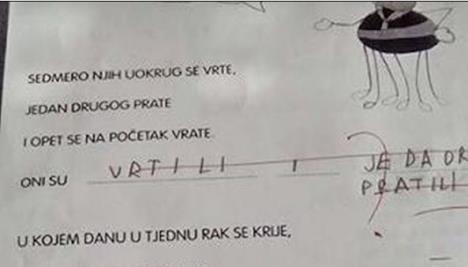 SEDMERO NJIH UOKRUG SE VRTE,
JEDAN DRUGOG PRATE
I OPET SE NA POČETAK VRATE.
ONI SU VRTILI I JE DA DR
PRATILI
U KOJEM DANU U TJEDNU RAK SE KRIJE,